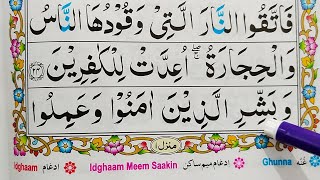 فَاتَّقُوا النَّارَ الَّتِیْ وَقُوْدُهَا النَّاسُ
وَالْحِجَارَةُ ۖۚ اُعِدَّتْ لِلْكٰفِرِیْنَ ﴿۲۴﴾
وَ بَشِّرِ الَّذِیْنَ اٰمَنُوْا وَعَمِلُوا
منزل ۱
Idghaam ادغام Idghaam Meem Saakin ادغام میم ساکن Ghunna غنّه